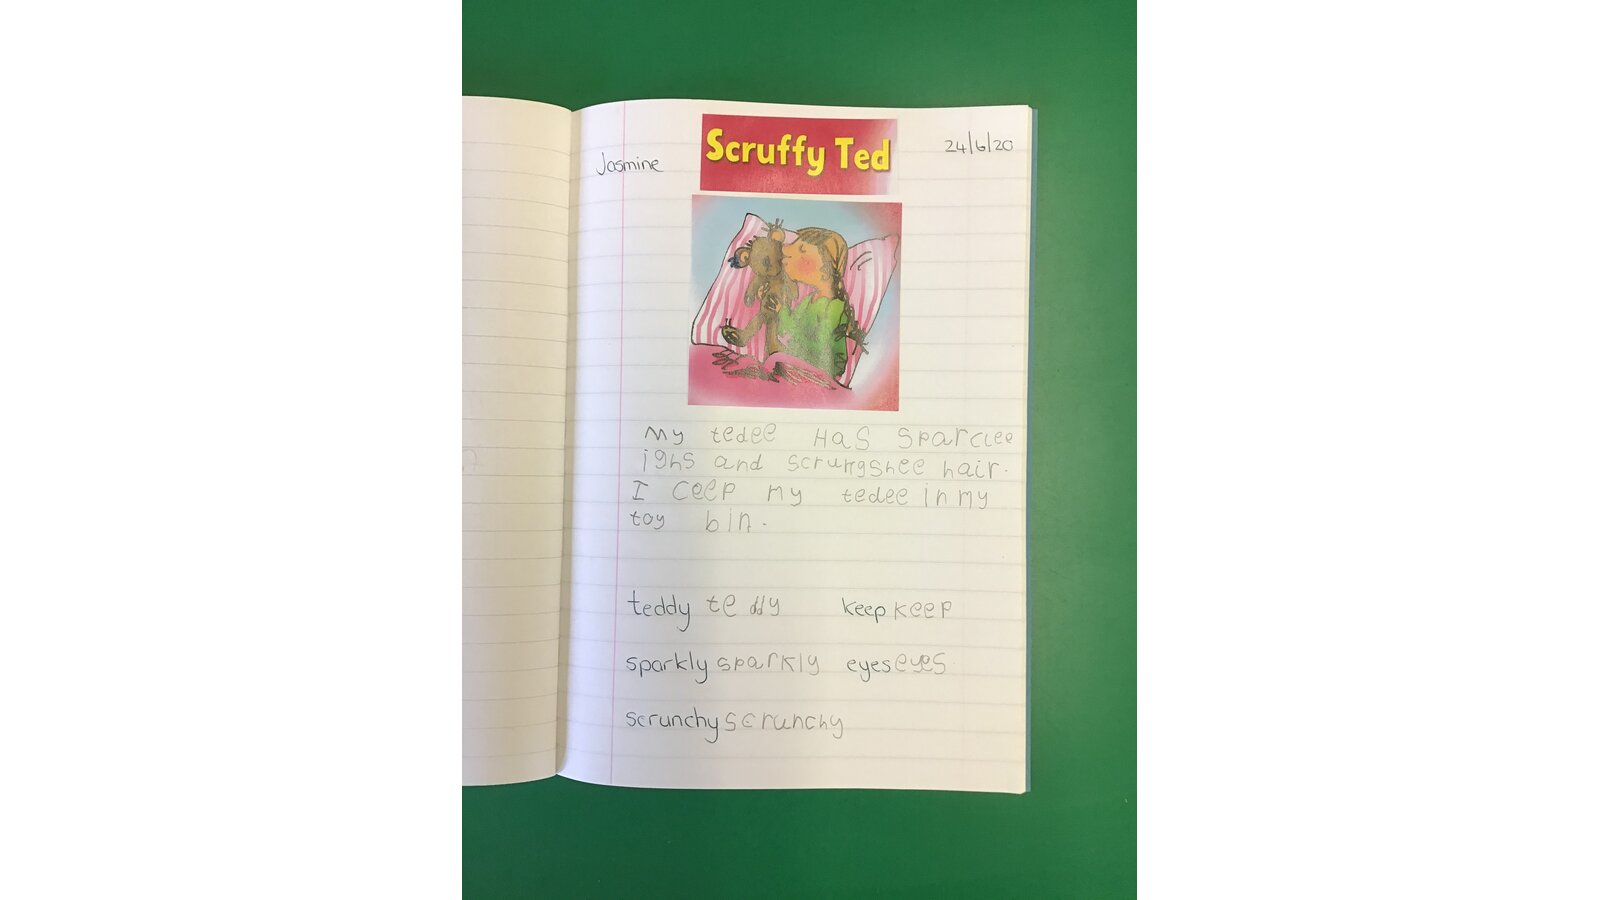 Scruffy Ted
24/6/20
Jasmine
My tedee Has sparclee
ighs and scrungshee hair.
I ceep my tedee in my
toy bin.
teddy teddy keep keep
sparkly sparkly eyes eyes
scrunchy scrunchy